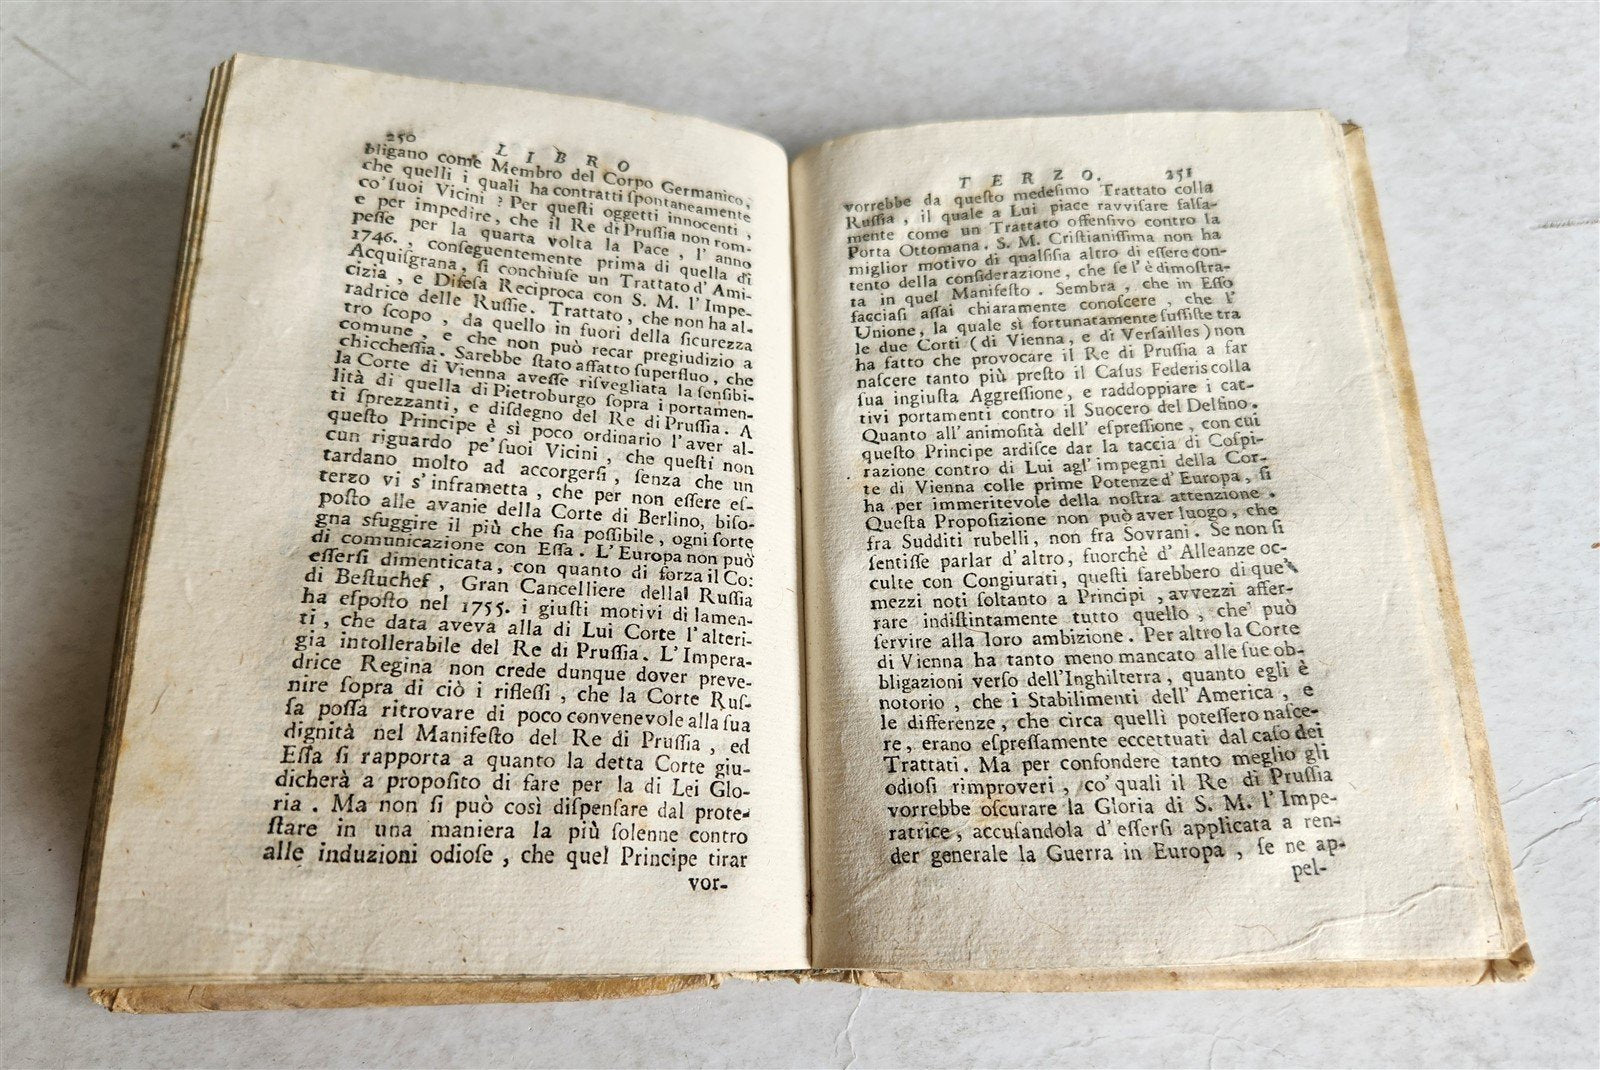 250
LIBRO
bligano come Membro del Corpo Germanico,
che quelli i quali ha contratti ſpontaneamente
co'ſuoi Vicini? Per queſti oggetti innocenti,
e per impedire, che il Re di Pruſſia non rom-
peſſe per la quarta volta la Pace, l' anno
1746., conſeguentemente prima di quella di
Acquiſgrana, ſi conchiuſe un Trattato d' Ami-
cizia, e Difeſa Reciproca con S. M. l'Impe-
radrice delle Ruſſie. Trattato, che non ha al-
tro ſcopo, da quello in fuori della ſicurezza
comune, e che non può recar pregiudizio a
chiccheſſia. Sarebbe ſtato affatto ſuperfluo, che
la Corte di Vienna aveſſe riſvegliata la ſenſibi-
lità di quella di Pietroburgo ſopra i portamen-
ti ſprezzanti, e diſdegno del Re di Pruſſia. A
queſto Principe è sì poco ordinario l'aver al-
cun riguardo pe'ſuoi Vicini, che queſti non
tardano molto ad accorgerſi, ſenza che un
terzo vi s'inframetta, che per non eſſere eſ-
poſto alle avanie della Corte di Berlino, biſo-
gna sfuggire il più che ſia poſſibile, ogni ſorte
di comunicazione con Eſſa. L'Europa non può
eſſerſi dimenticata, con quanto di forza il Co:
di Beſtuchef, Gran Cancelliere della Ruſſia
ha eſpoſto nel 1755. i giuſti motivi di lamen-
ti, che data aveva alla di Lui Corte l'alteri-
gia intollerabile del Re di Pruſſia. L'Impera-
drice Regina non crede dunque dover preve-
nire ſopra di ciò i rifleſſi, che la Corte Ruſ-
ſa poſſa ritrovare di poco convenevole alla ſua
dignità nel Manifeſto del Re di Pruſſia, ed
Eſſa ſi rapporta a quanto la detta Corte giu-
dicherà a propoſito di fare per la di Lei Glo-
ria. Ma non ſi può così diſpenſare dal prote-
ſtare in una maniera la più ſolenne contro
alle induzioni odioſe, che quel Principe tirar
vor-
TERZO. 251
vorrebbe da queſto medeſimo Trattato colla
Ruſſia, il quale a Lui piace ravviſare falſa-
mente come un Trattato offenſivo contro la
Porta Ottomana. S. M. Criſtianiſſima non ha
miglior motivo di qualſiſia altro di eſſere con-
tento della conſiderazione, che ſe l'è dimoſtra-
ta in quel Manifeſto. Sembra, che in Eſſo
facciaſi aſſai chiaramente conoſcere, che l'
Unione, la quale sì fortunatamente ſuſſiſte tra
le due Corti (di Vienna, e di Verſailles) non
ha fatto che provocare il Re di Pruſſia a far
naſcere tanto più preſto il Caſus Federis colla
ſua ingiuſta Aggreſſione, e raddoppiare i cat-
tivi portamenti contro il Suocero del Delfino.
Quanto all'animoſità dell'eſpreſſione, con cui
queſto Principe ardiſce dar la taccia di Coſpi-
razione contro di Lui agl'impegni della Cor-
te di Vienna colle prime Potenze d'Europa, ſi
ha per immeritevole della noſtra attenzione.
Queſta Propoſizione non può aver luogo, che
fra Sudditi rubelli, non fra Sovrani. Se non ſi
ſentiſſe parlar d'altro, fuorchè d'Alleanze oc-
culte con Congiurati, queſti ſarebbero di que'
mezzi noti ſoltanto a Principi, avvezzi affer-
rare indiſtintamente tutto quello, che può
ſervire alla loro ambizione. Per altro la Corte
di Vienna ha tanto meno mancato alle ſue ob-
bligazioni verſo dell'Inghilterra, quanto egli è
notorio, che i Stabilimenti dell'America, e
le differenze, che circa quelli poteſſero naſce-
re, erano eſpreſſamente eccettuati dal caſo dei
Trattati. Ma per confondere tanto meglio gli
odioſi rimproveri, co'quali il Re di Pruſſia
vorrebbe oſcurare la Gloria di S. M. l'Impe-
ratrice, accuſandola d'eſſerſi applicata a ren-
der generale la Guerra in Europa, ſe ne ap-
pel-